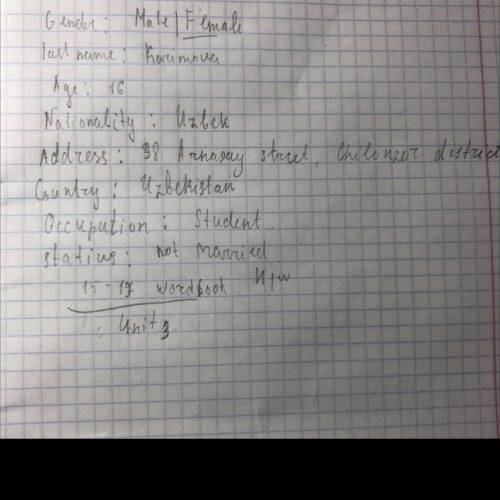 Gender: Male / Female
last name: Karimova
Age: 16
Nationality: Uzbek
Address: 38 Arnasay street, Chilonzor district
Country: Uzbekistan
Occupation: Student
status: not Married
15-17 wordbook H/w
Unit 3